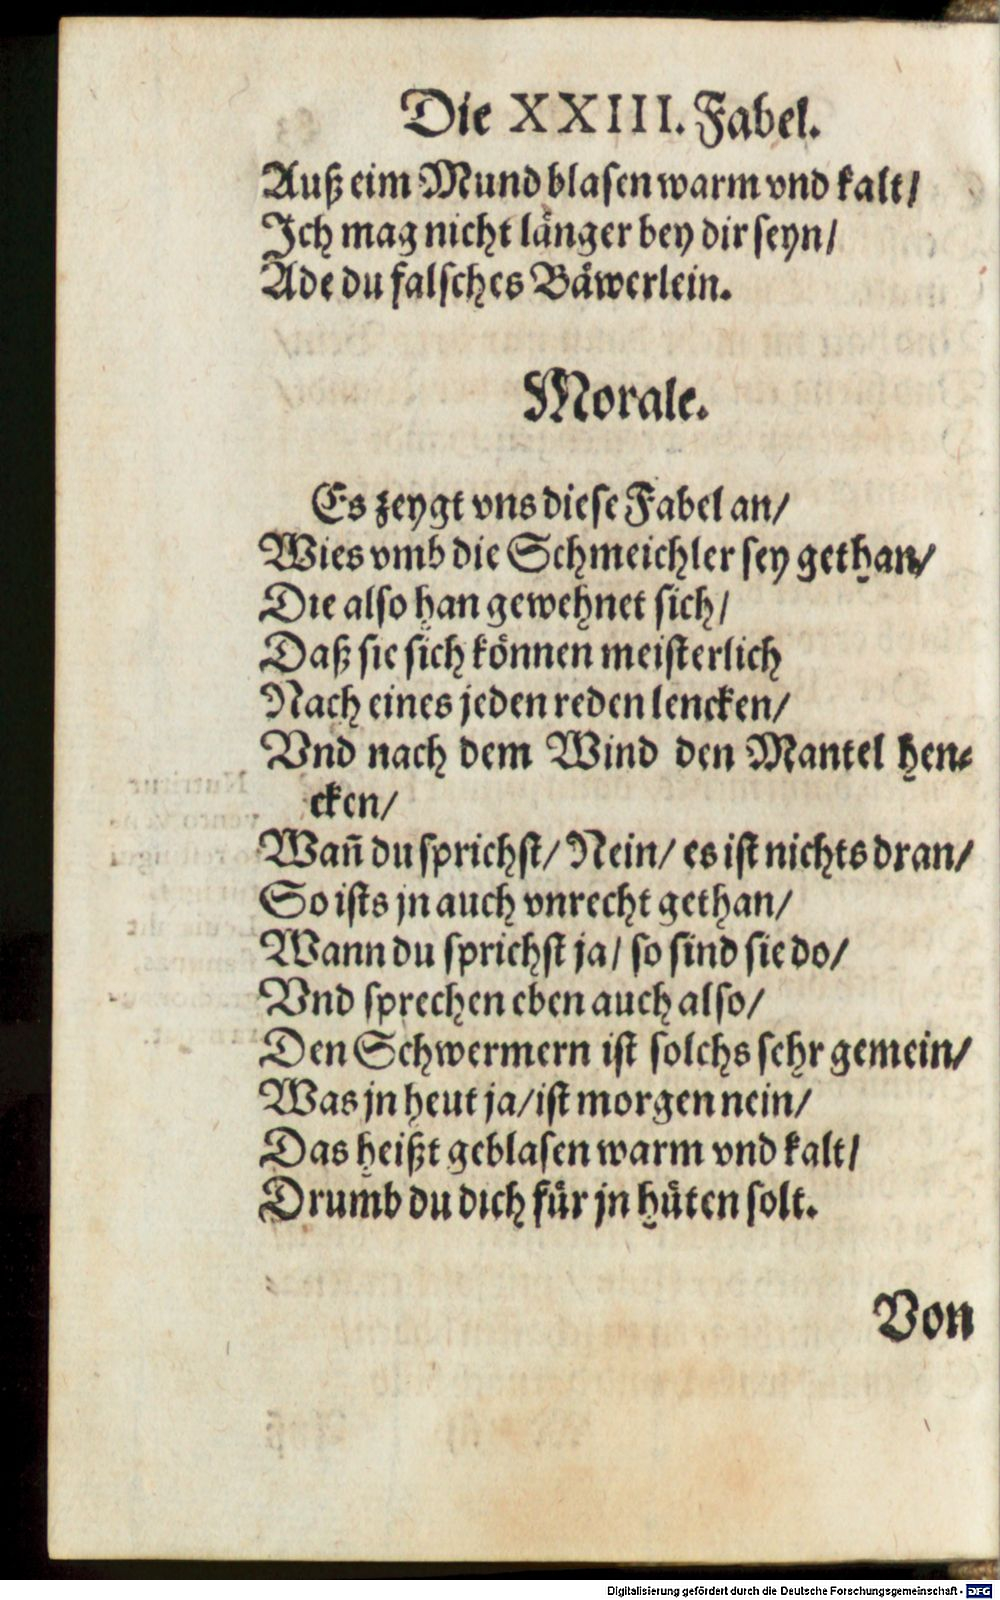 Die XXIII. Fabel.
Auß eim Mund blasen warm vnd kalt/
Jch mag nicht länger bey dir seyn/
Ade du falsches Bäwerlein.
Morale.
Es zeygt vns diese Fabel an/
Wies vmb die Schmeichler sey gethan/
Die also han gewehnet sich/
Daß sie sich können meisterlich
Nach eines jeden reden lencken/
Vnd nach dem Wind den Mantel hen⸗
cken/
Wañ du sprichst/ Nein/ es ist nichts dran/
So ists jn auch vnrecht gethan/
Wann du sprichst ja/ so sind sie do/
Vnd sprechen eben auch also/
Den Schwermern ist solchs sehr gemein/
Was jn heut ja/ ist morgen nein/
Das heißt geblasen warm vnd kalt/
Drumb du dich für jn hüten solt.
Von
Digitalisierung gefördert durch die Deutsche Forschungsgemeinschaft - DFG